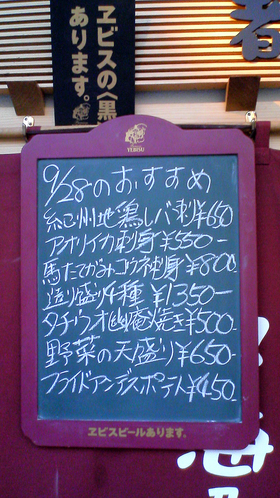 ヱビスの〈黒〉
あります。
YEBISU
9/28のおすすめ
紀州地鶏レバ刺¥650
アオリイカ刺身¥550-
馬たてがみコウネ刺身¥800
造り盛り4種¥1350-
タチウオ幽庵焼き¥500-
野菜の天盛り¥650-
フライドアンデスポテト¥450-
ヱビスビールあります。